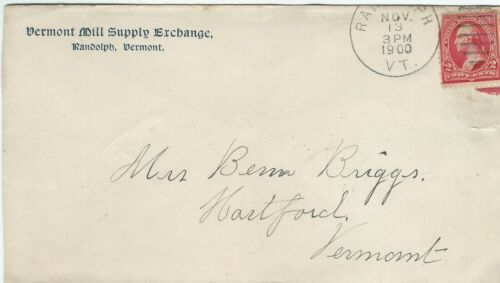 Vermont Mill Supply Exchange,
Randolph, Vermont.
RANDOLPH
NOV.
13
3 PM
1900
VT.
2 TWO CENTS 2
Mrs Benn Briggs.
Hartford.
Vermont